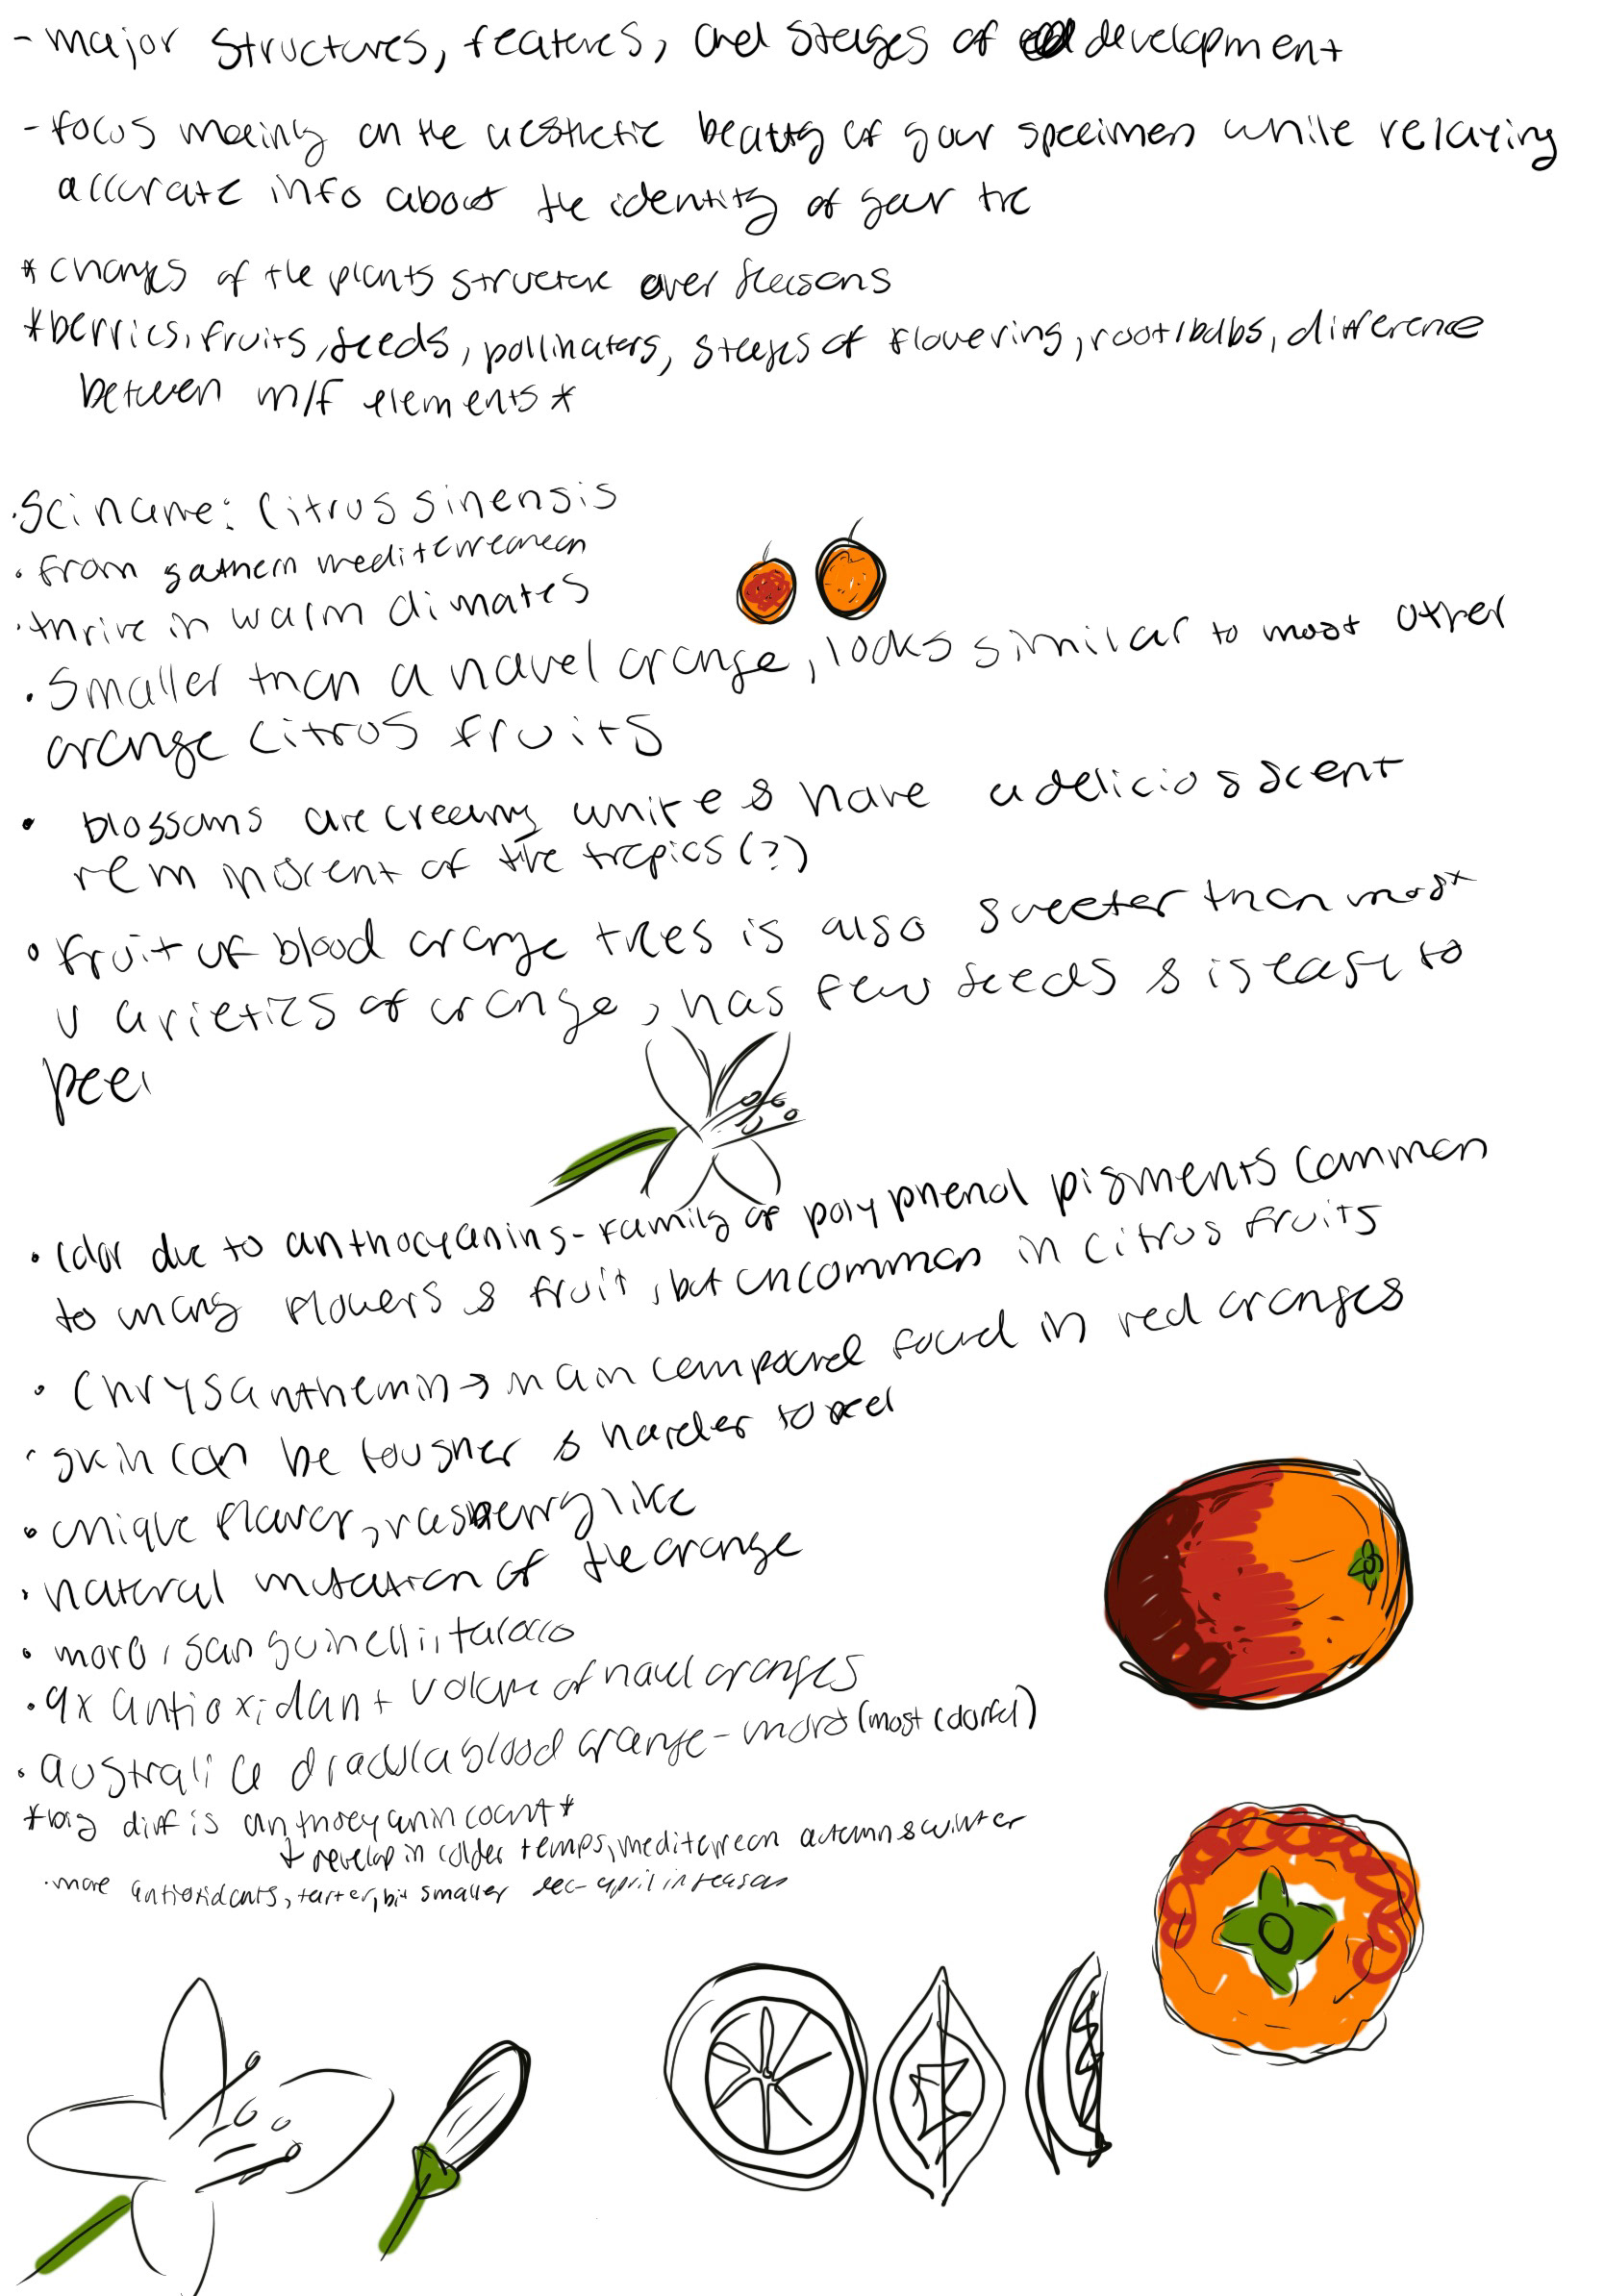 - major structures, features, and stages of development
- focus making on the aesthetic beauty of your specimen while relaying
accurate info about the identity of your tre
* changes of the plants structure over seasons
* berries, fruits, seeds, pollinaters, stages of flowering, root/bulbs, difference
between m/f elements *
• Sci name: Citrus sinensis
• from southern mediterranean
• thrive in warm climates
• Smaller than a navel orange, looks similar to most other
orange citrus fruits
• blossoms are creamy white & have a delicios scent
reminiscent of the tropics (?)
• fruit of blood orange trees is also sweeter than most
varieties of orange, has few seeds & is easy to
peel
• Color due to anthocyanins - family of polyphenol pigments common
to many flowers & fruit, but uncommon in citrus fruits
• Chrysanthemin → main compound found in red oranges
• skin can be tougher & harder to peel
• unique flavor, rasberry like
• natural mutation of the orange
• moro, sanguinelli, tarocco
• 9x antioxidant volume of navel oranges
• australia dracula blood orange - moro (most colorful)
* big diff is anthocyanin count *
↓ develop in colder temps, mediterrean autumn & winter
• more antioxidants, tarter, bit smaller dec-april in season